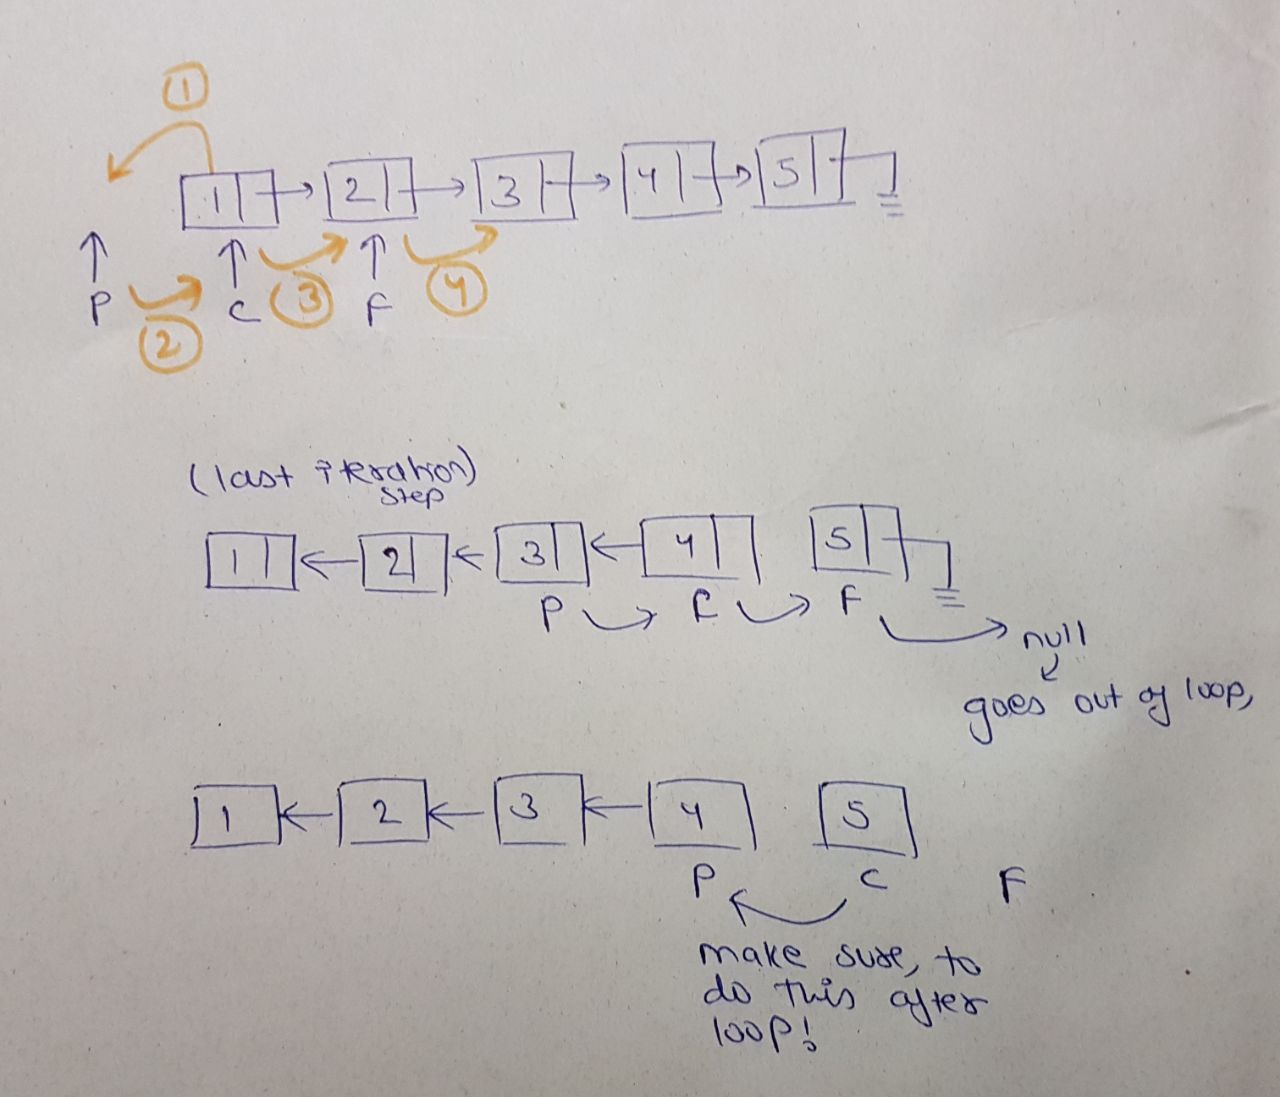 1
1 2 3 4 5
P C F
2 3 4
(last iteration)
step
1 2 3 4 5
P F
null
goes out of loop,
1 2 3 4 5
P C F
make sure, to
do this after
loop!